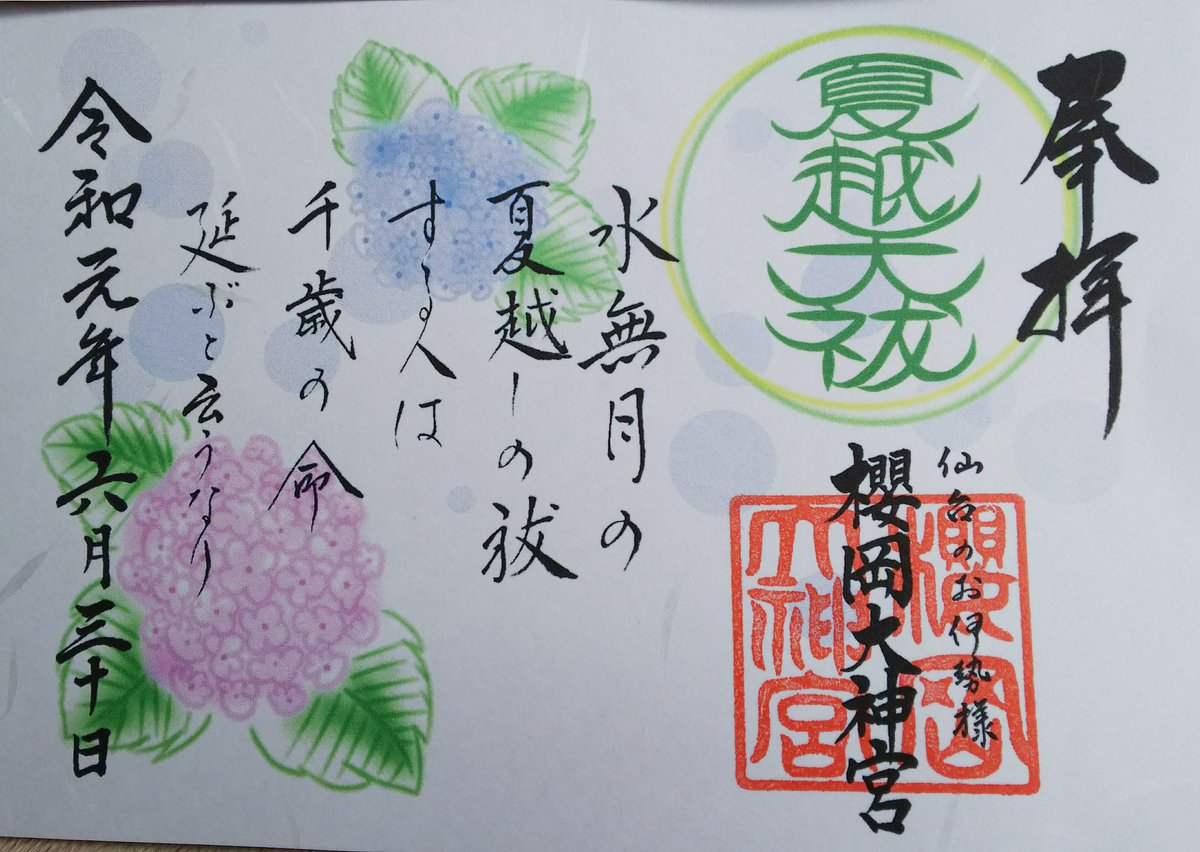 奉拝
夏越大祓
仙台のお伊勢様
櫻岡大神宮
櫻岡
大神宮
水無月の
夏越しの祓
する人は
千歳の命
延ぶと云うなり
令和元年六月三十日